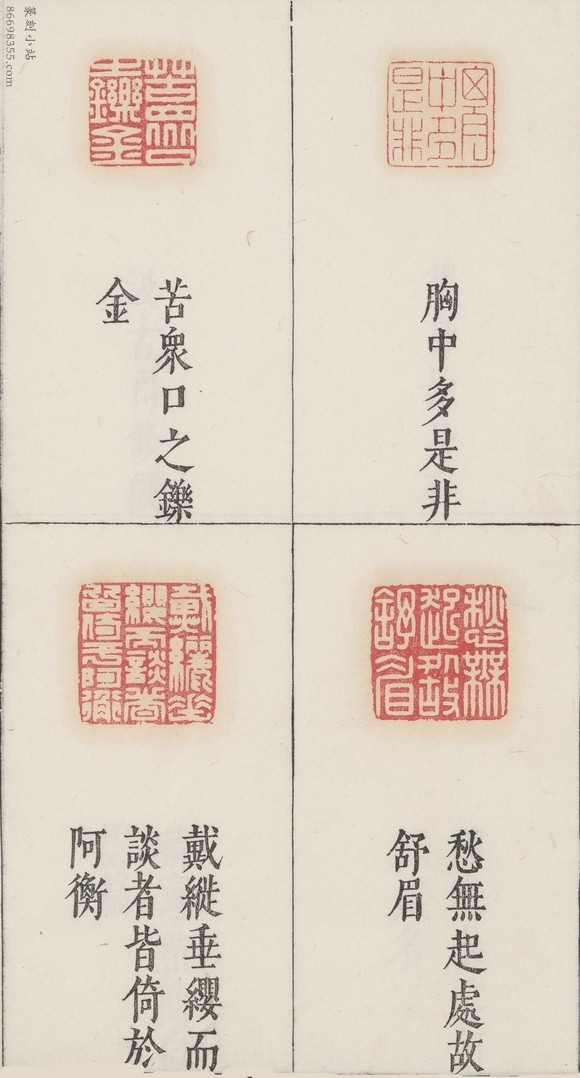 胸中多是非
苦衆口之鑠
金
愁無起處故
舒眉
戴縰垂纓而
談者皆倚於
阿衡
篆刻小站
86698355.com